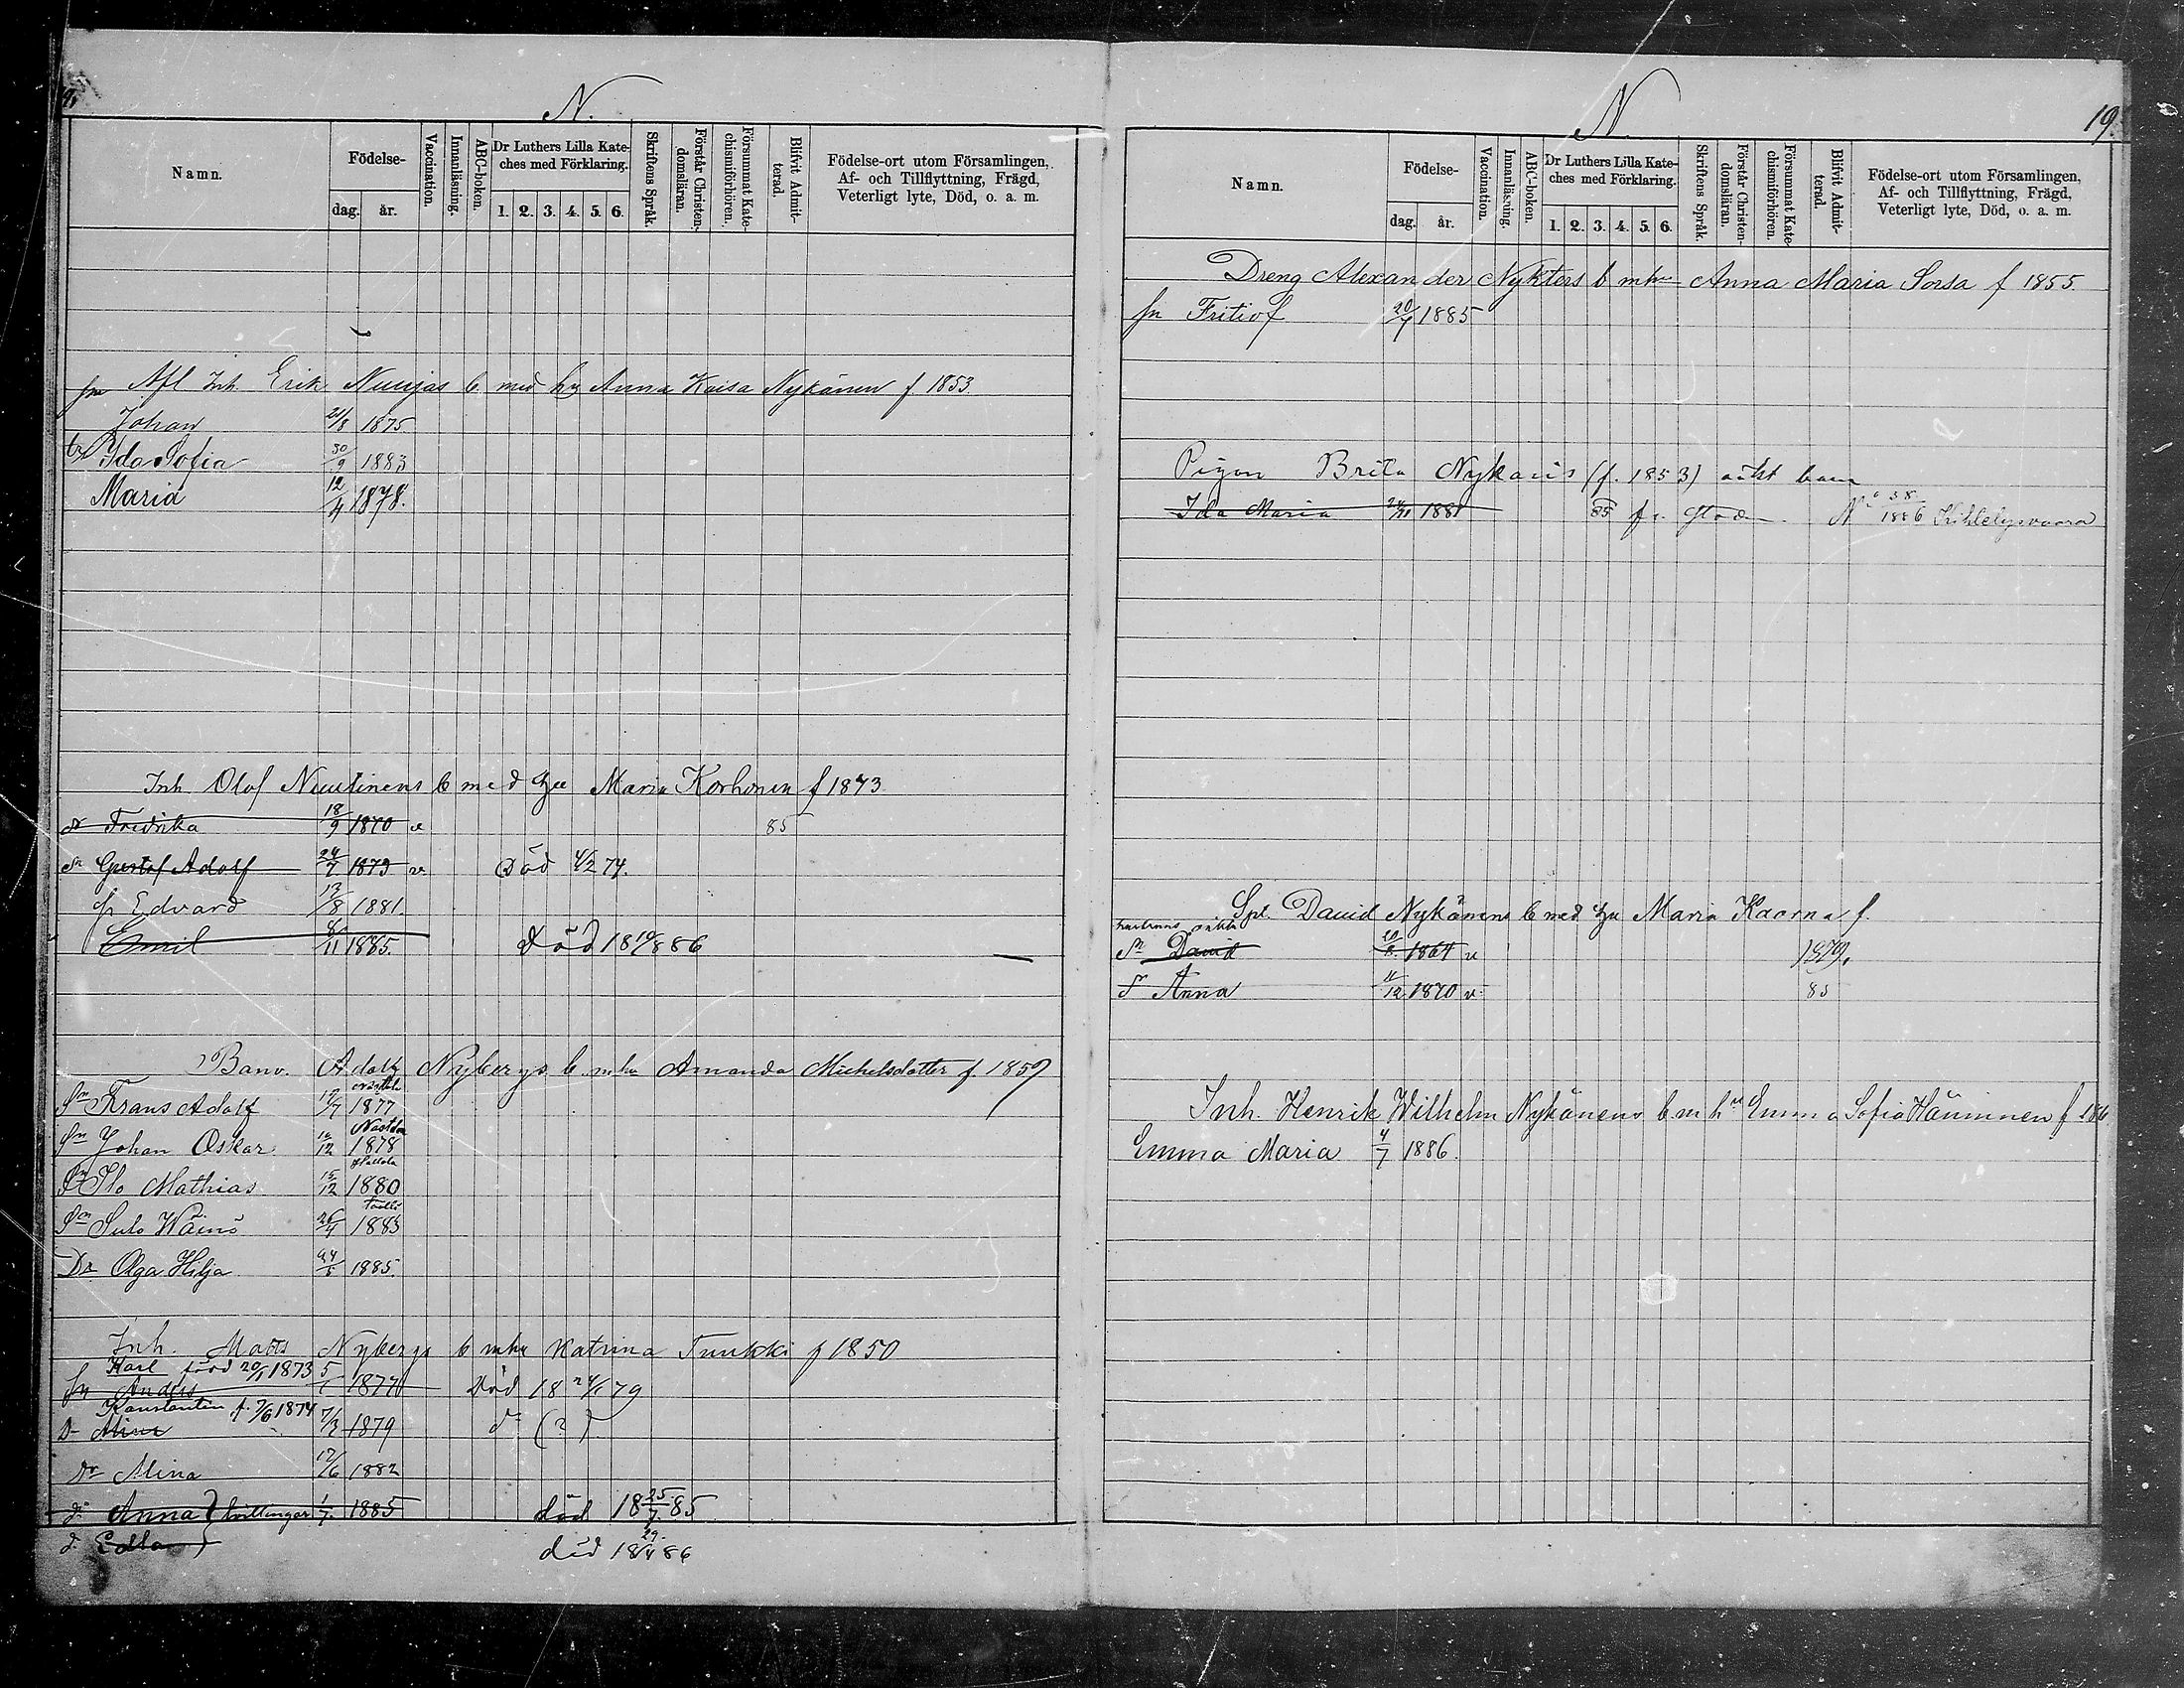 N.
Namn.
Födelse-
dag. år.
Vaccination.
Innanläsning.
ABC-boken.
Dr Luthers Lilla Kate-
ches med Förklaring.
1. 2. 3. 4. 5. 6.
Skriftens Språk.
Förstår Christen-
domsläran.
Försummat Kate-
chismiförhören.
Blifvit Admit-
terad.
Födelse-ort utom Församlingen,
Af- och Tillflyttning, Frägd,
Veterligt lyte, Död, o. a. m.
Afl Inh. Erik Nuujas b med hu Anna Kaisa Nykänen f. 1853.
Johan 21/8 1875
Ida Sofia 30/9 1883
Maria 12/4 1878.
Inh Olof Nuutinens b med hu Maria Korhonen f 1873
dr Fredrika 18/9 1870 v 85
Sn Gustaf Adolf 24/7 1873 v Död 4/2 74.
Sn Edvard 13/8 1881.
Emil 1885. död 18 10/8 86
Banv. Adolf Nybergs b. m hu Amanda Michelsdotter f. 1859
Sn Frans Adolf 1877
Nastola
Sn Johan Oskar 12 1878
Hollola
Sn Ilo Mathias 15/12 1880
Sn Sulo Wäinö 26/4 1883
Dr Olga Hilja 24/5 1885.
Inh. Matts Nybergs b m hu Katrina Tuukki f 1850
Karl född 20/1 1873
Sn Anders 1877 Död 18 24/1 79
Konstantin f. 7/6 1874
D Alina 7/3 1879 d (?)
Dr Alina 12/6 1882
d: Anna tvillingar 1/7 1885 död 18 25/7 85
d: Edla död 18 29/4 86
N.
19.
Namn.
Födelse-
dag. år.
Vaccination.
Innanläsning.
ABC-boken.
Dr Luthers Lilla Kate-
ches med Förklaring.
1. 2. 3. 4. 5. 6.
Skriftens Språk.
Förstår Christen-
domsläran.
Försummat Kate-
chismiförhören.
Blifvit Admit-
terad.
Födelse-ort utom Församlingen,
Af- och Tillflyttning, Frägd,
Veterligt lyte, Död, o. a. m.
Dreng Alexander Nykters b m hu Anna Maria Sorsa f 1855.
Sn Fritiof 1885
Pigan Brita Nykänens (f. 1853) oäkt barn
Ida Maria 24/11 1881 85 fr. No 38 1886 Kihtelysvaara
Spt. David Nykänens b med hu Maria Kaarna f.
hustruns oäkta
Sn David 20/8 1864 v 1879.
d Anna 11/12 1870 v 85
Inh. Henrik Wilhelm Nykänens b m hu Emma Sofia Hänninen f 186
Emma Maria 4/7 1886.